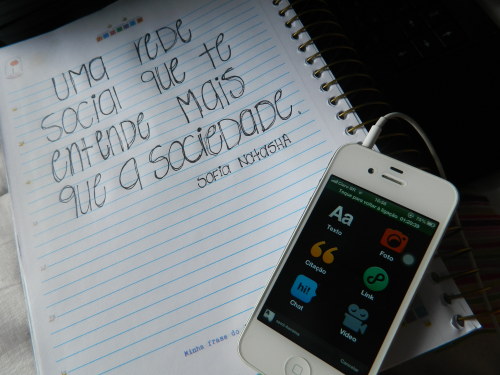 UMA REDE
SOCIAL QUE TE
ENTENDE MAIS
QUE A SOCIEDADE.
SOFIA NATASHA
Minha frase do
Toque para voltar à ligação
Aa
Texto
Foto
Citação
Link
hi!
Chat
Vídeo